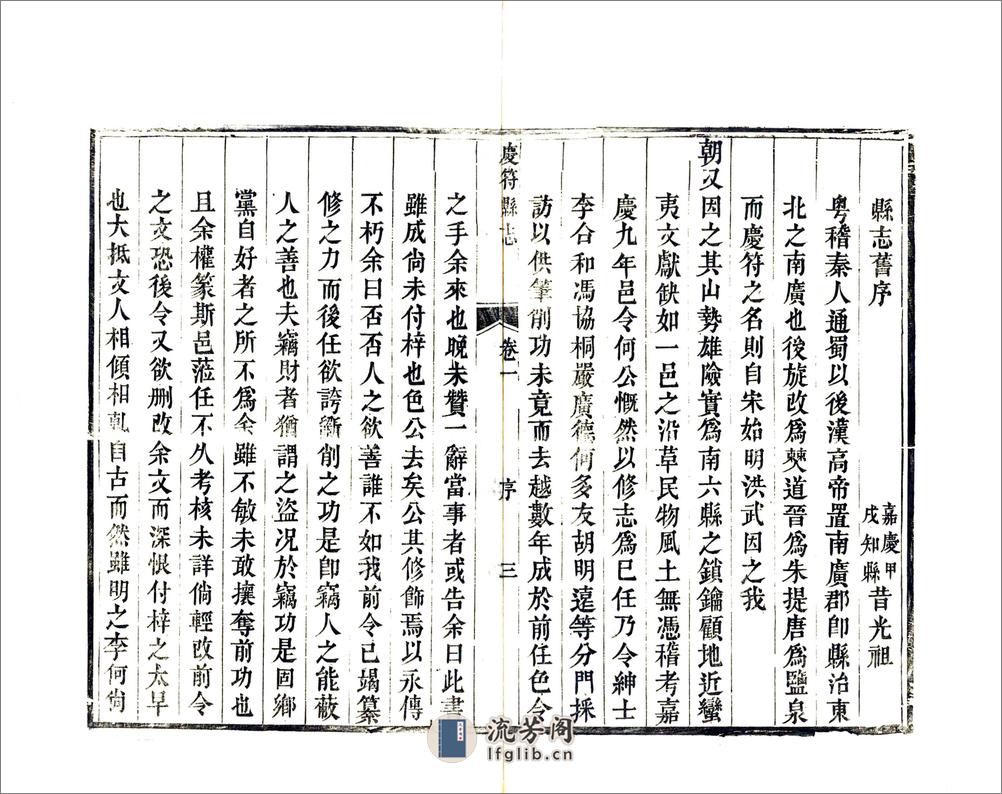 縣志舊序
嘉慶甲
戌知縣昔光祖
粤稽秦人通蜀以後漢高帝置南廣郡卽縣治東
北之南廣也後旋改爲僰道晉爲朱提唐爲鹽泉
而慶符之名則自宋始明洪武因之我
朝又因之其山勢雄險實爲南六縣之鎖鑰顧地近蠻
夷文獻缺如一邑之沿草民物風土無憑稽考嘉
慶九年邑令何公慨然以修志爲巳任乃令紳士
李合和馮協桐嚴廣德何多友胡明遠等分門採
訪以供筆削功未竟而去越數年成於前任色令
慶符縣志
卷一
序
三
之手余來也晚未贊一辭當事者或告余曰此書
雖成尚未付梓也色公去矣公其修飾焉以永傳
不朽余曰否否人之欲善誰不如我前令已竭纂
修之力而後任欲誇斵削之功是卽竊人之能蔽
人之善也夫竊財者猶謂之盜况於竊功是固鄉
黨自好者之所不爲余雖不敏未敢攘奪前功也
且余權篆斯邑蒞任不久考核未詳倘輕改前令
之文恐後令又欲刪改余文而深恨付梓之太早
也大抵文人相傾相軋自古而然雖明之李何尙
流芳阁
lfglib.cn